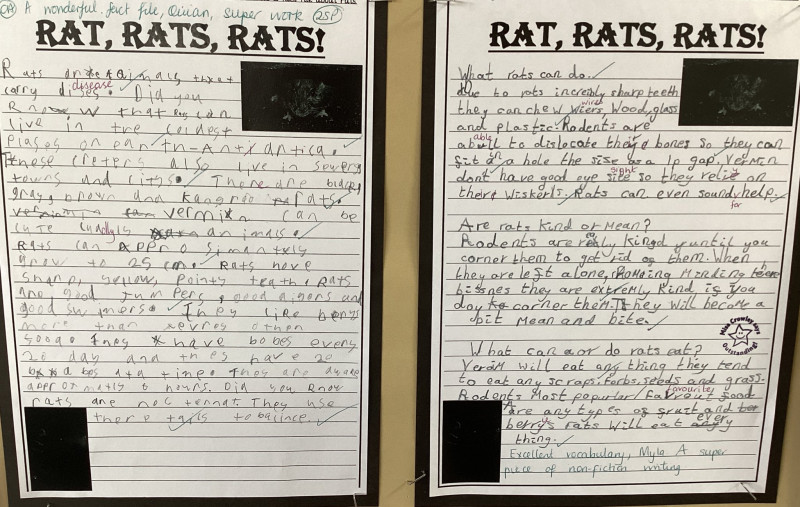 A wonderful fact file, Quian, super work 2SP
RAT, RATS, RATS!
Rats are animals that
carry dises. Did you
disease
Know that Rats can
live in the coldest
plases on earth-Antrartica.
These creters also live in sowers
towns and citys. There are black,
gray, brown and kangroo rats.
vermin can be
cute cuddly animals.
Rats can appro simantxly
grow to 25 cm. Rats have
sharp, yellow, pointy teath. Rats
are good jumpers, good and
good swimers. They like
more than
They have babes every
20 day and thes have 20
babes at a time. They are awake
appor 6 hours. Did you know
rats are not They use
there tails to balince.
RAT, RATS, RATS!
What rats can do.
due to rats increbly sharp teeth
they can chew wiers, Wood, glass
wires
and plastic. Rodents are
abull to dislocate there bones so they can
able
fit in a hole the size as a 1p gap. Vermin
dont have good eye site so they reliet on
sight
there Wiskerls. Rats can even sound help.
for
Are rats Kind or Mean?
Rodents are realy kingd untill you
corner them to get rid of them. When
they are left alone, Roming Minding there
bissnes they are extremly Kind is you
do corner them. They will become a
bit mean and bite.
Miss Crowley says Outstanding!
What can or do rats eat?
Verim will eat any thing they tend
to eat any scraps, herbs, seeds and grass.
Rodents Most populer/ favrout food
favourite
are any types of fruit and
berry's rats will eat every
thing.
Excellent vocabulary, Myla A super
piece of non-fiction writing